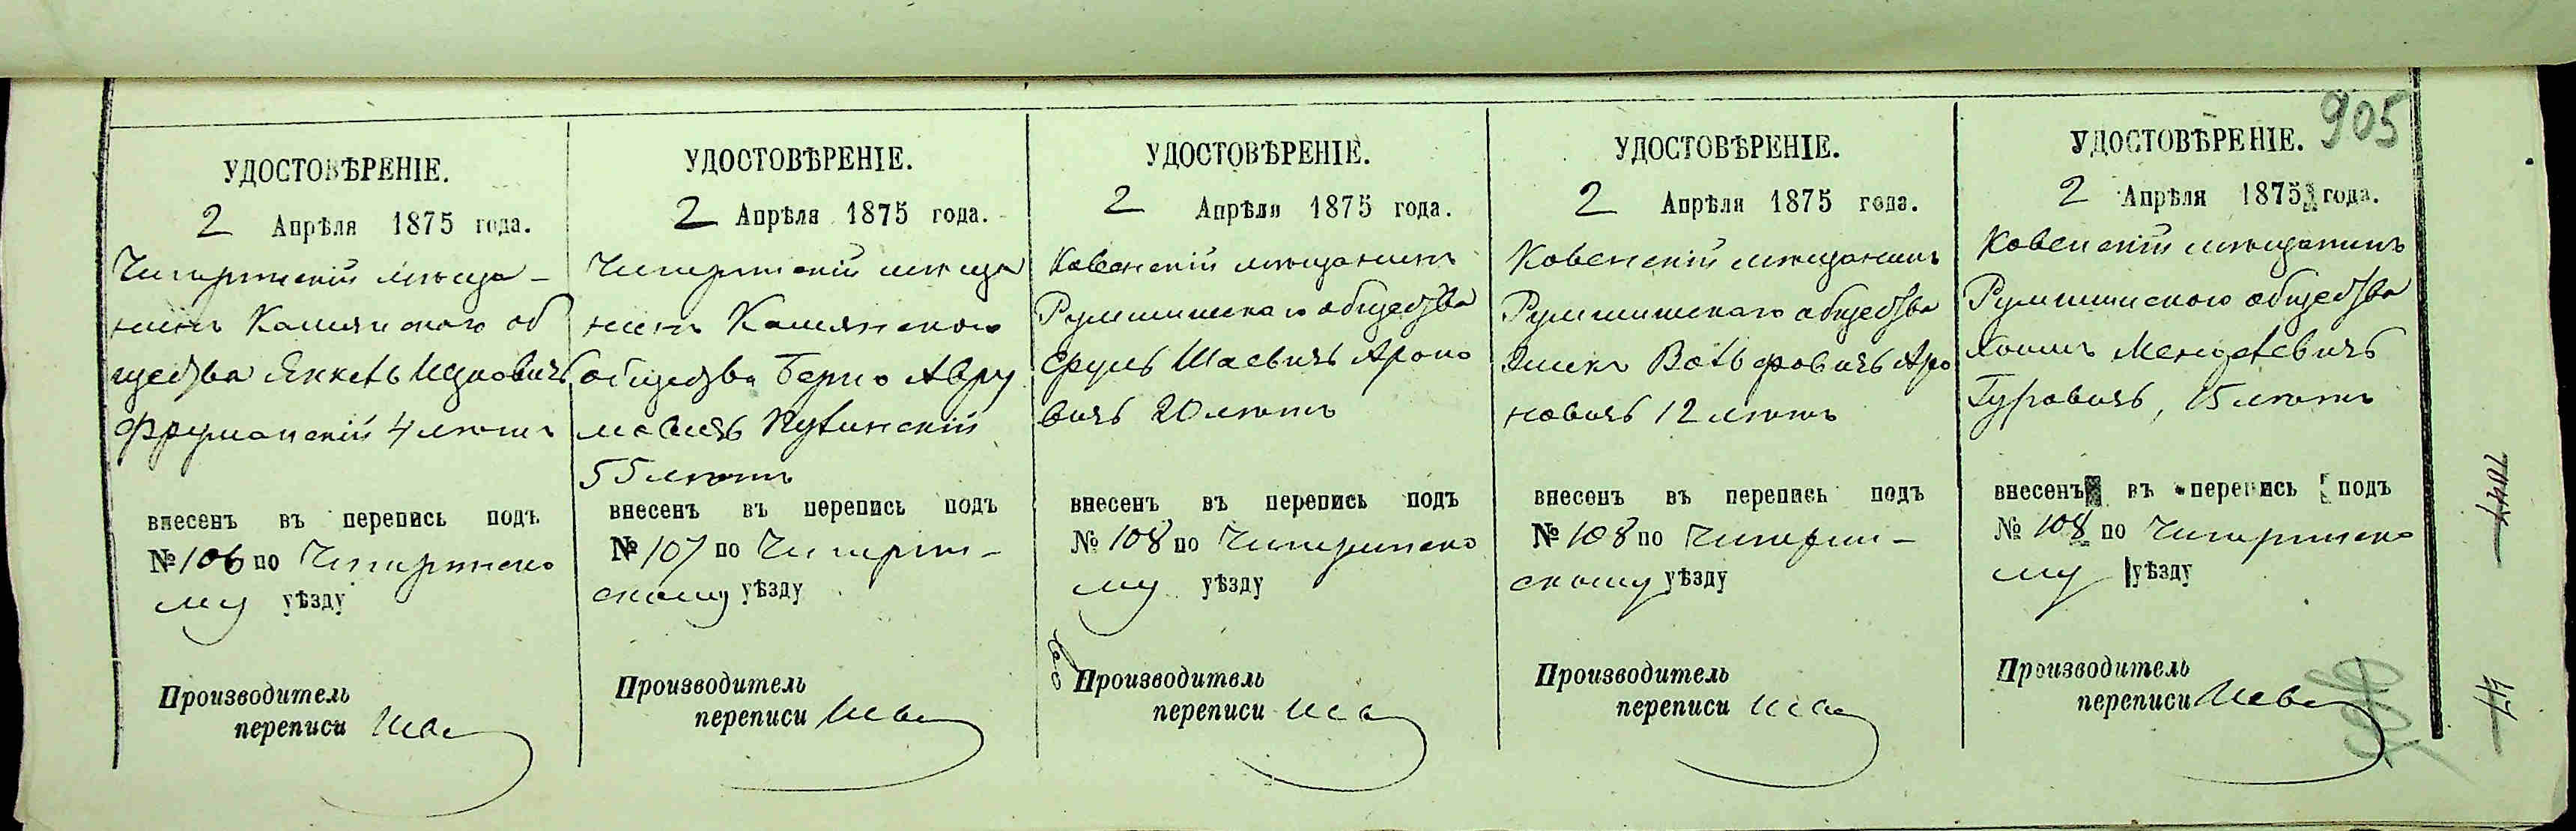 905
УДОСТОВѢРЕНІЕ.
2 Апрѣля 1875 года.
Чигиринскій мѣща-
нинъ Камянского об
щества Янкель Ицковичъ
Фруманскій 4 лѣтъ
внесенъ въ перепись подъ
№ 106 по Чигиринско
му уѣзду
Производитель
переписи
УДОСТОВѢРЕНІЕ.
2 Апрѣля 1875 года.
Чигиринскій мѣща
нинъ Камянского
общества Берко Авру
мовичъ
55 лѣтъ
внесенъ въ перепись подъ
№ 107 по Чигирин-
скому уѣзду
Производитель
переписи
УДОСТОВѢРЕНІЕ.
2 Апрѣля 1875 года.
Ковенскій мѣщанинъ
Румшишскаго общества
Сруль Шаевичъ Ароно
вичъ 20 лѣтъ
внесенъ въ перепись подъ
№ 108 по Чигиринско
му уѣзду
Производитель
переписи
УДОСТОВѢРЕНІЕ.
2 Апрѣля 1875 года.
Ковенскій мѣщанинъ
Румшишскаго общества
Вольфовичъ Аро
новичъ 12 лѣтъ
внесенъ въ перепись подъ
№ 108 по Чигирин-
скому уѣзду
Производитель
переписи
УДОСТОВѢРЕНІЕ.
2 Апрѣля 1875 года.
Ковенскій мѣщанинъ
Румшишского общества
Менделевичъ
Гуровичъ, 15 лѣтъ
внесенъ въ перепись подъ
№ 108 по Чигиринско
му уѣзду
Производитель
переписи